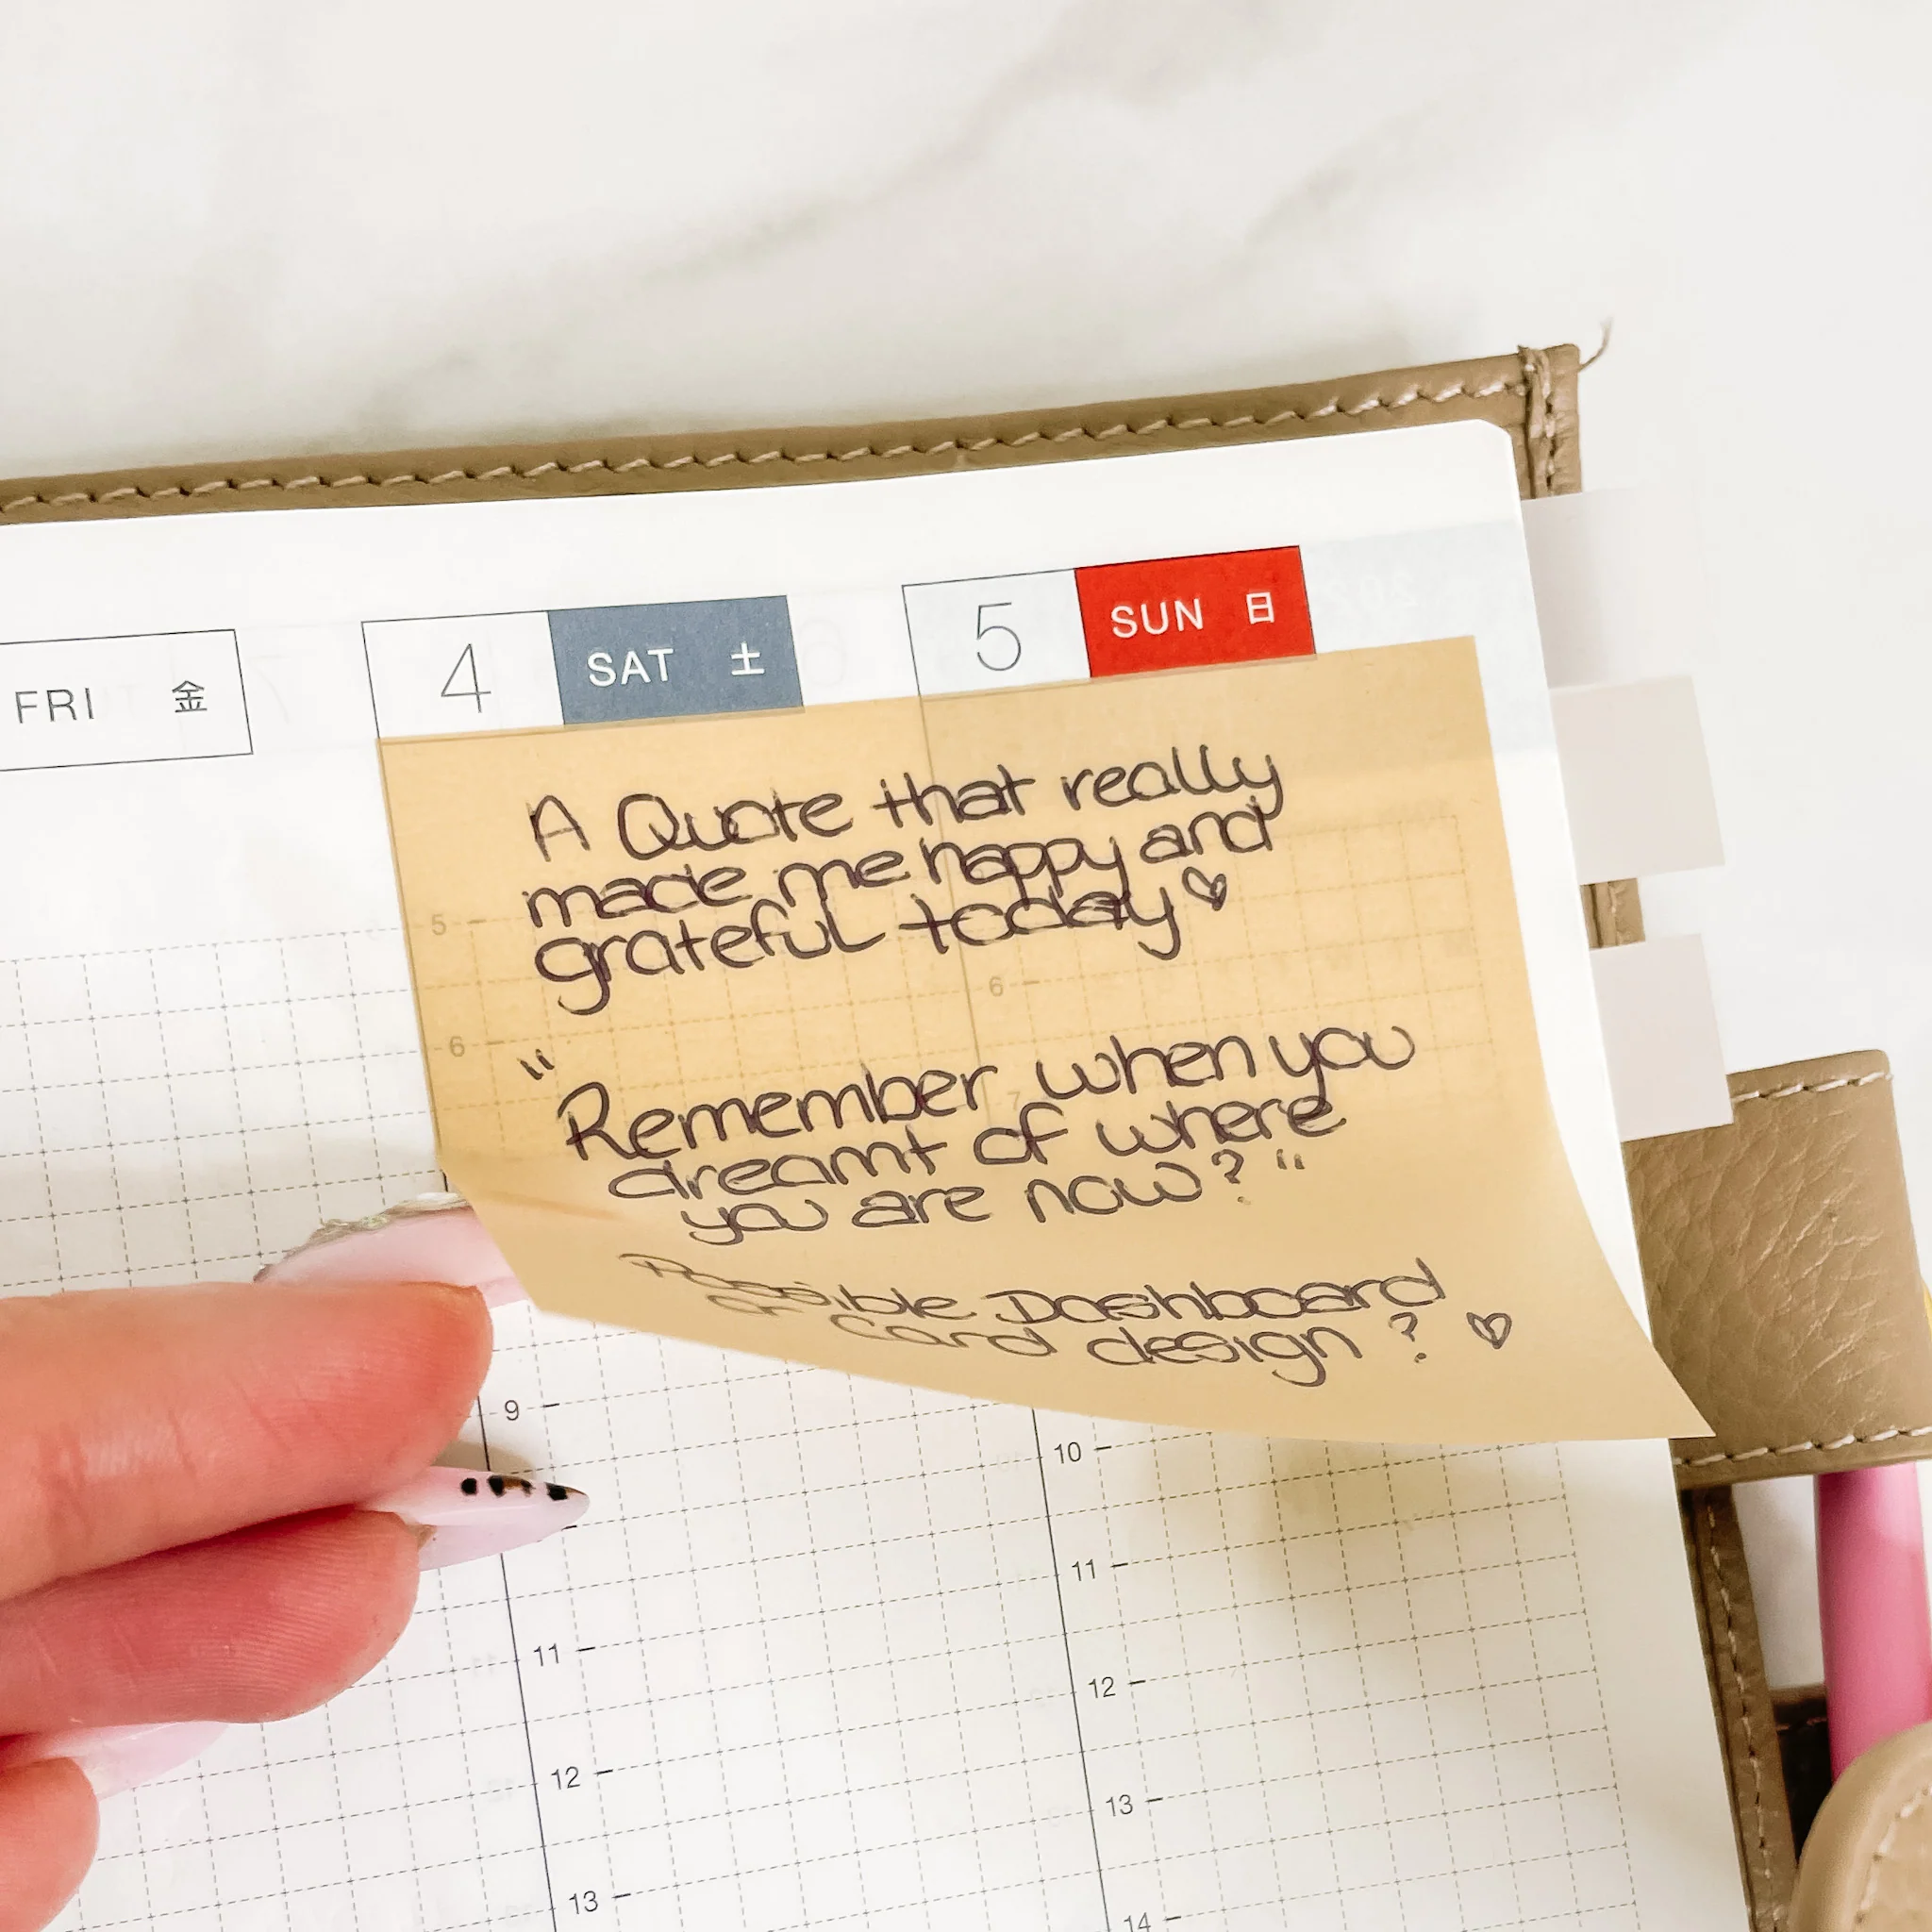 FRI 金
4 SAT 土
5 SUN 日
A Quote that really
made me happy and
grateful today
"Remember when you
dreamt of where
you are now?"
Possible Dashboard
or card design?
5
6
9
11
12
13
6
7
10
11
12
13
14